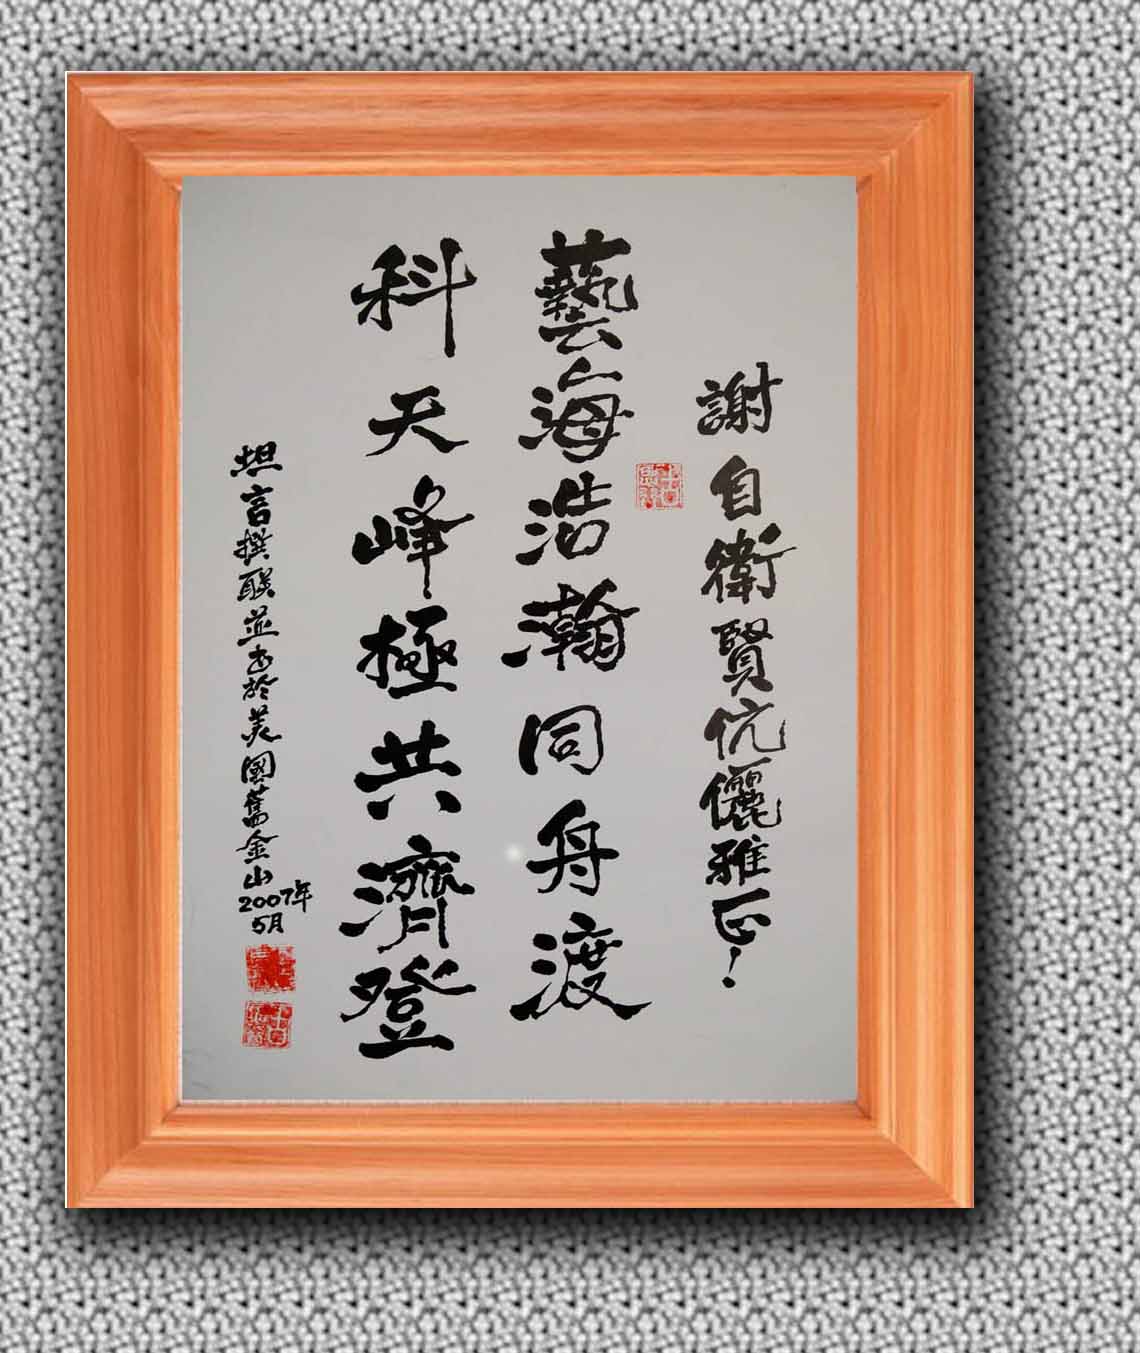 謝自衛賢伉儷雅正！
藝海浩瀚同舟渡
科天峰極共濟登
坦言撰联並书於美國舊金山
2007年
5月